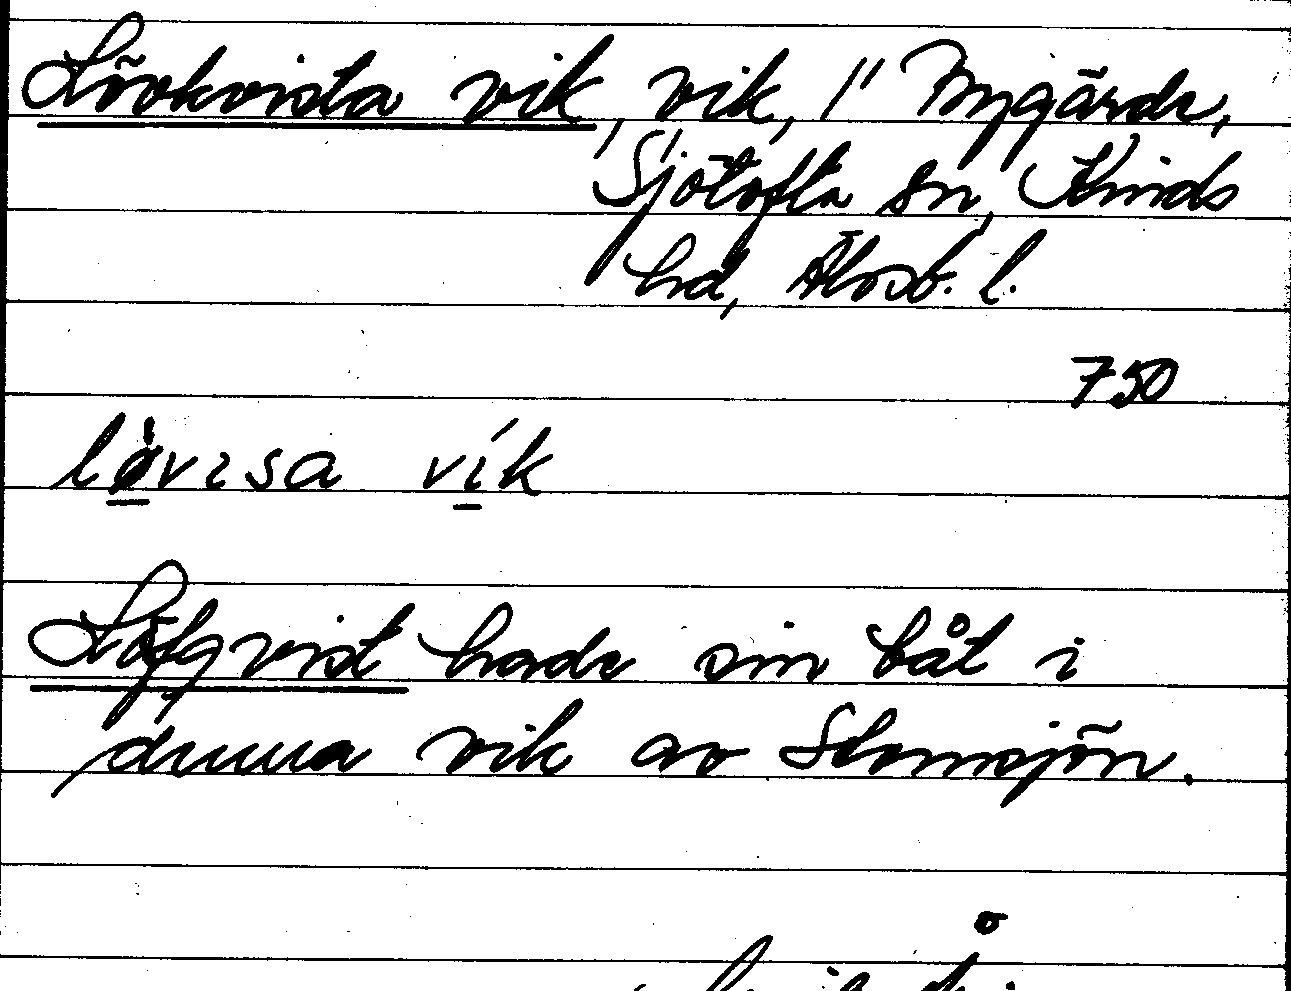 Lövkvista vik, vik, 1" Nygårde,
Sjötofta sn, Kinds
hd, Älvsb. l.
750
lövɪsa vík
Löfqvist hade sin båt i
denna vik av Stomsjön.